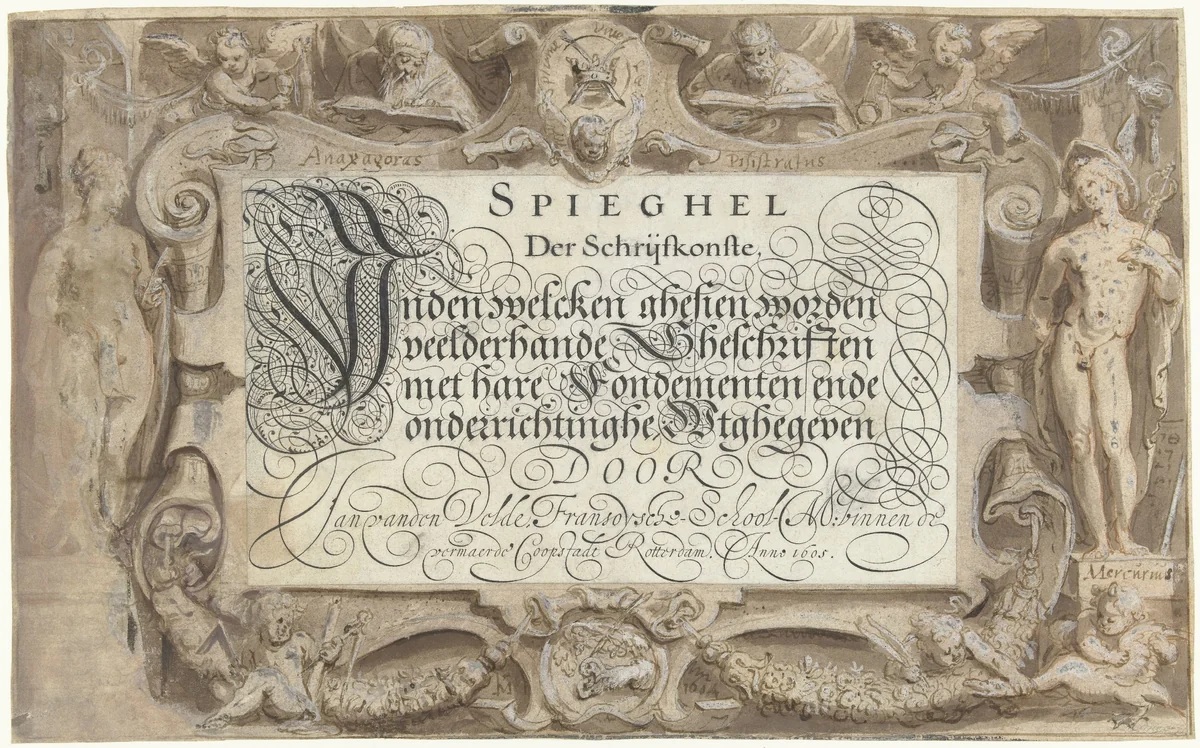 Vive
Anaxagoras
Pisistratus
SPIEGHEL
Der Schrijfkonste,
Inden welcken ghesien worden
veelderhande Gheschriften
met hare Fondementen ende
onderrichtinghe. Wtghegeven
DOOR
Jan vanden Velde, Fransoysche-School-M: binnen de
vermaerde Coopstadt Rotterdam. Anno 1605.
Mercurius